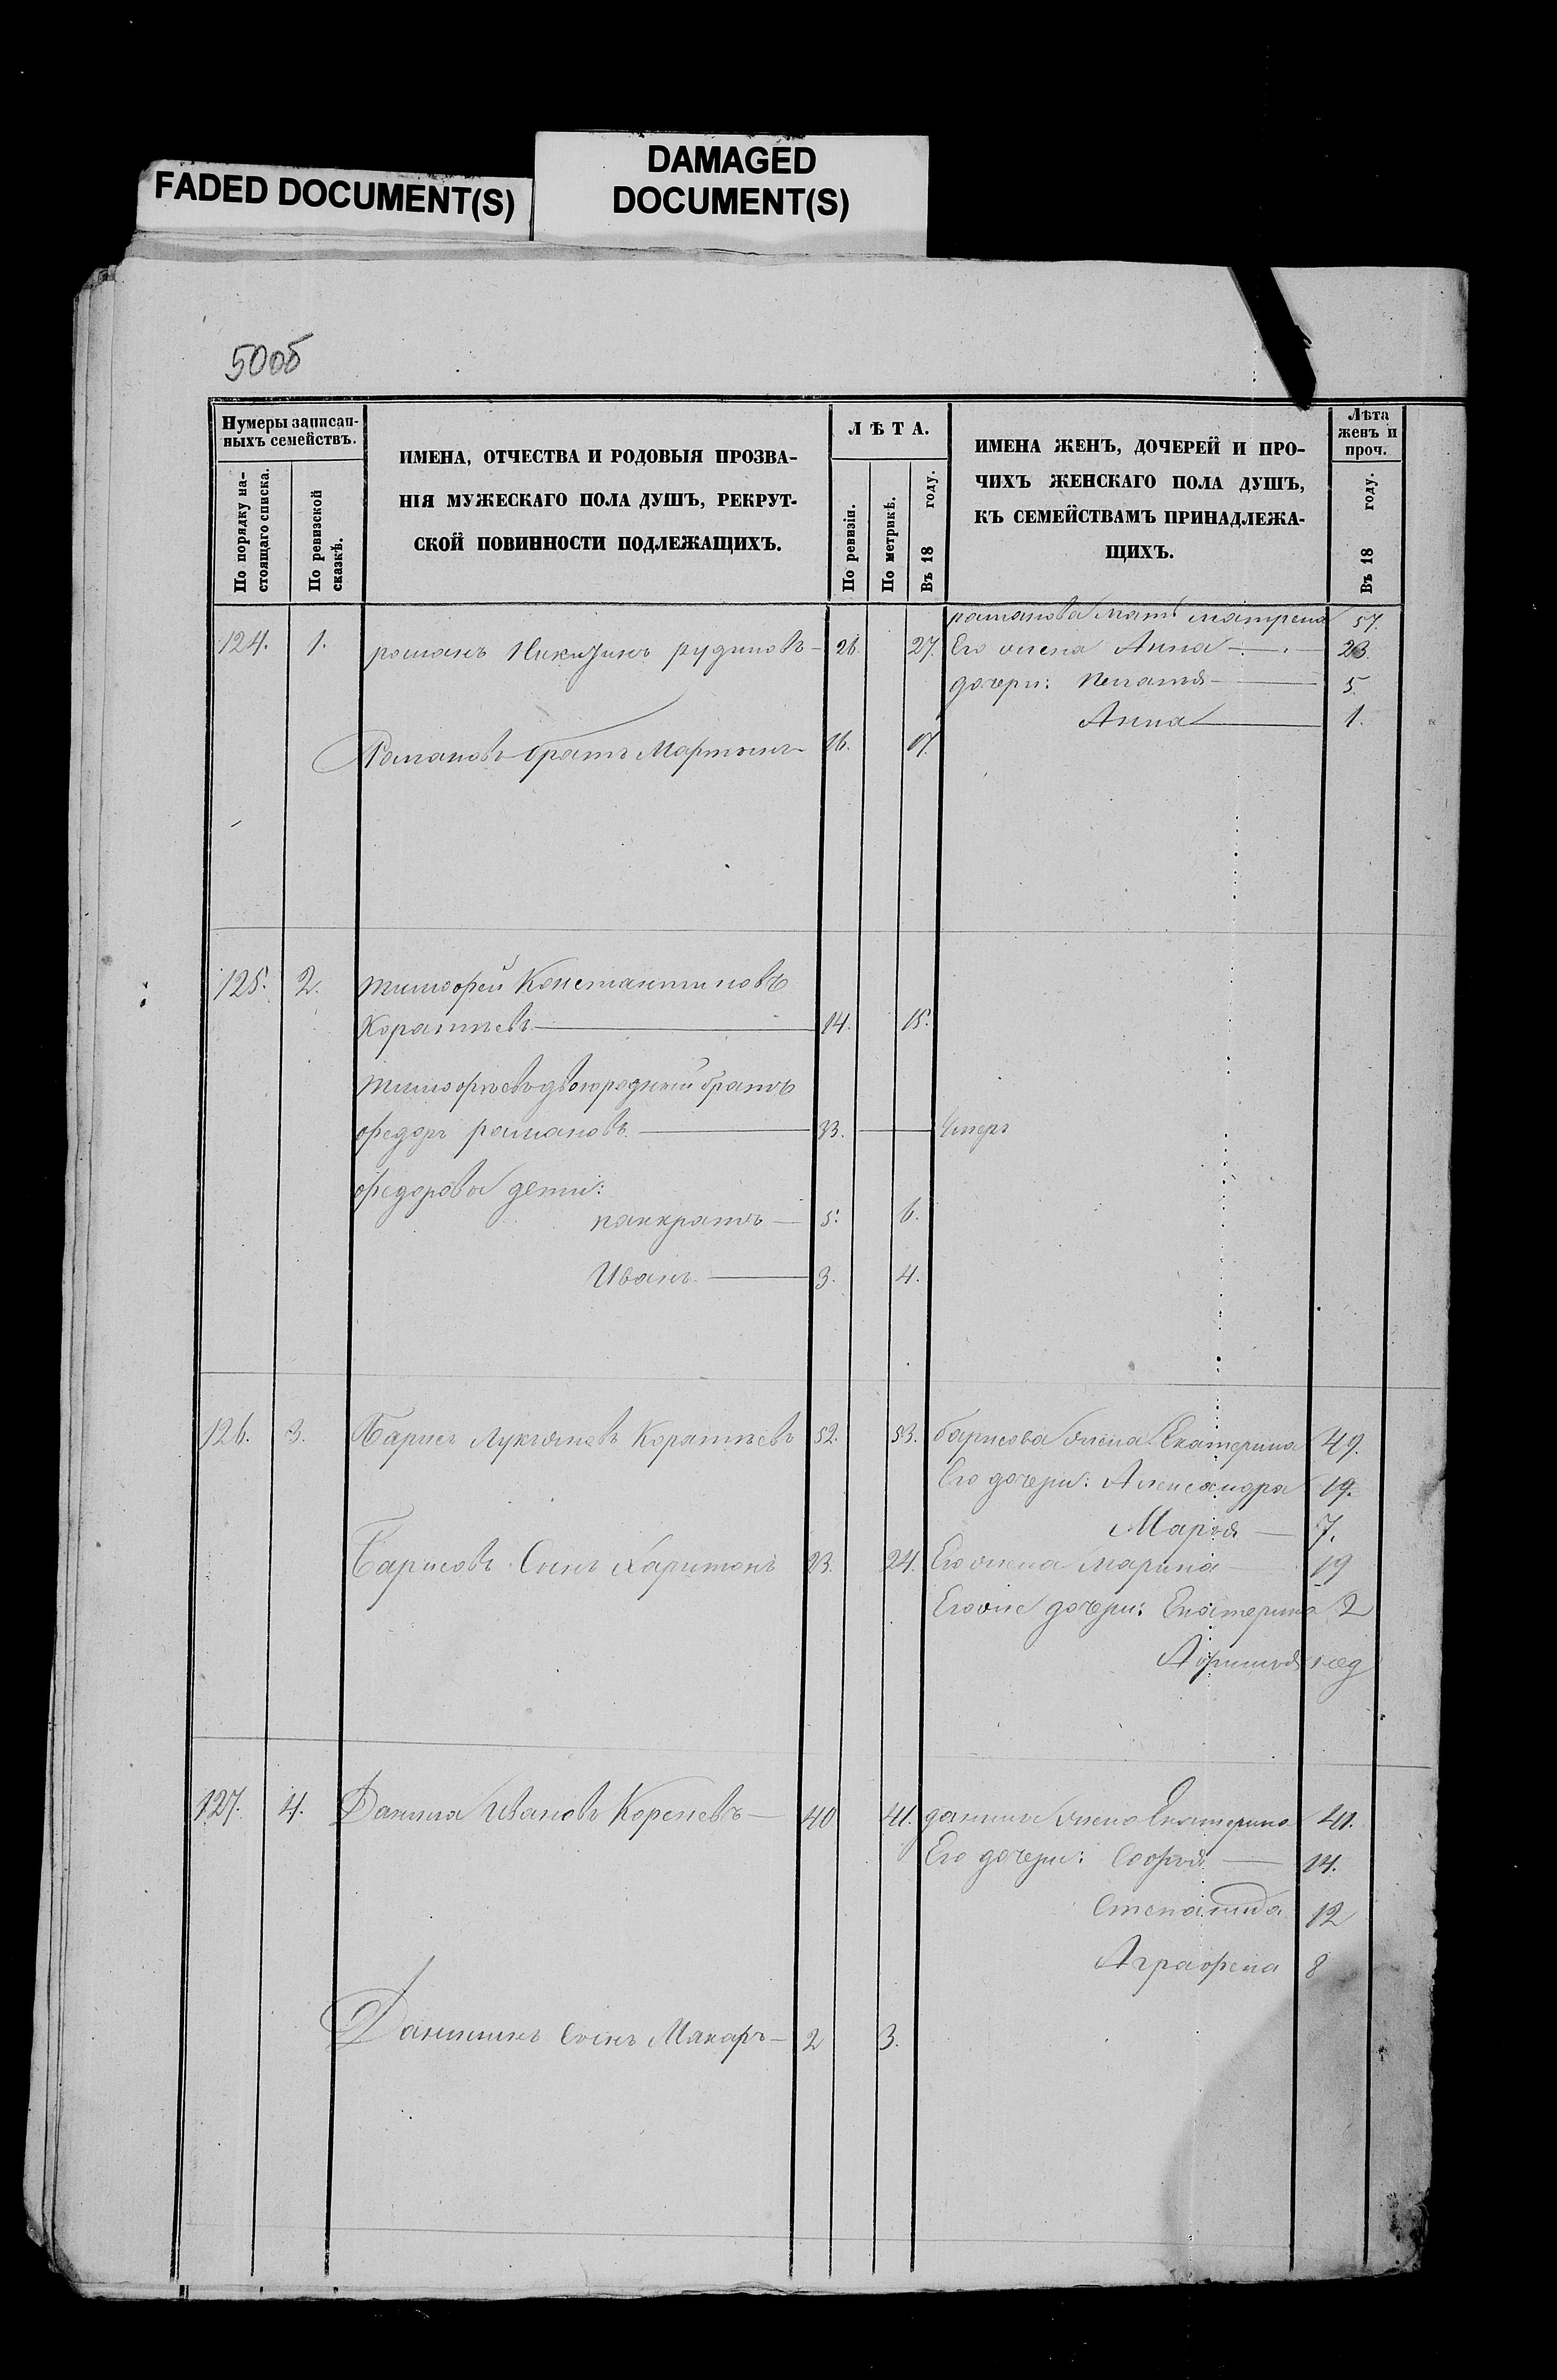 FADED DOCUMENT(S)
DAMAGED
DOCUMENT(S)
50об
Нумеры записан-
ныхъ семействъ.
По порядку на-
стоящаго списка.
По ревизской
сказкѣ.
ИМЕНА, ОТЧЕСТВА И РОДОВЫЯ ПРОЗВА-
НІЯ МУЖЕСКАГО ПОЛА ДУШЪ, РЕКРУТ-
СКОЙ ПОВИННОСТИ ПОДЛЕЖАЩИХЪ.
ЛѢТА.
По ревизіи.
По метрикѣ.
Въ 18 году.
ИМЕНА ЖЕНЪ, ДОЧЕРЕЙ И ПРО-
ЧИХЪ ЖЕНСКАГО ПОЛА ДУШЪ,
КЪ СЕМЕЙСТВАМЪ ПРИНАДЛЕЖА-
ЩИХЪ.
Лѣта
женъ и
проч.
Въ 18 году.
романова мать матрена 57.
124. 1. романъ Никитинъ рудиновъ 26. 27. Его жена Анна 23.
дочери: 5.
Анна 1.
Романовъ братъ Мартынъ 16. 17.
125. 2. тимофей Константиновъ
Коратѣевъ 14. 15.
тимофѣевъ двоюродный братъ
федоръ романовъ 33. Умеръ
федорова дети:
панкратъ 5. 6.
Иванъ 3. 4.
126. 3. Барисъ Лукьяновъ Коратѣевъ 52. 53. барисова жена Екатерина 49.
Его дочери: Александра 19.
Марья 7.
Барисовъ Сынъ Харитонъ 23. 24. Его жена Марина 19
Его же дочери: Екатерина 2
127. 4. Данила Ивановъ Кореневъ 40 41. данилы жена Екатерина 41.
Его дочери: Софья 14.
Степанида 12
Аграфена 8
Данилинъ Сынъ Макаръ 2 3.